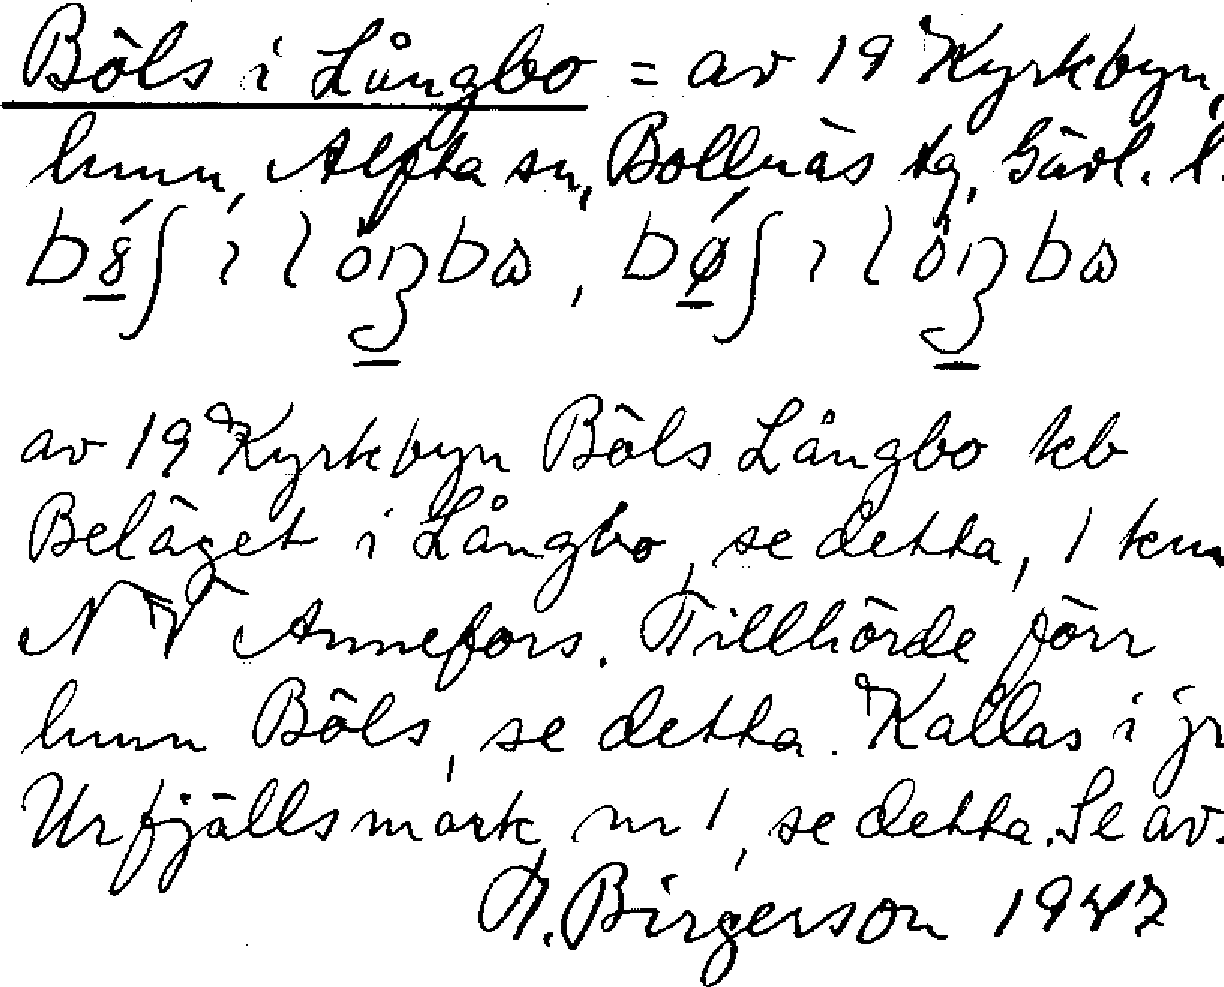 Böls i Långbo = av 19 Kyrkbyn,
hmn, Alfta sn, Bollnäs tg, Gävl. l.
av 19 Kyrkbyn Böls Långbo kb
Beläget i Långbo, se detta, 1 km
NV Annefors. Tillhörde förr
hmn Böls, se detta. Kallas i jr
Urfjällsmark nr 1, se detta. Se av.
Birgerson 1947